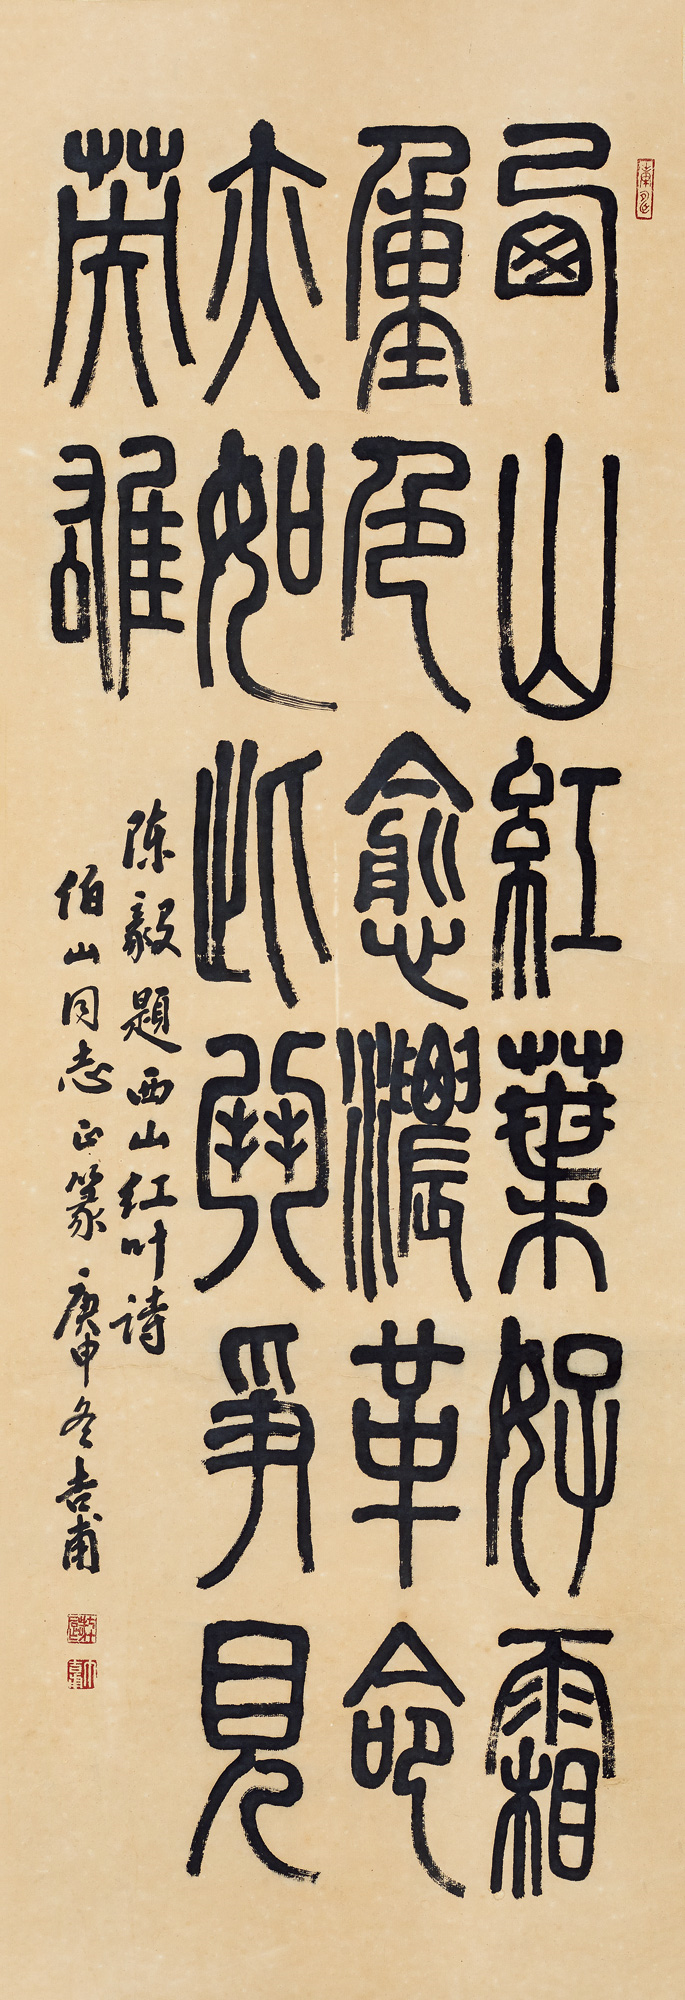 西山紅葉好霜
重色愈濃革命
亦如此鬥爭見
英雄
陈毅題西山红叶诗
伯山同志正篆庚申冬吉甫